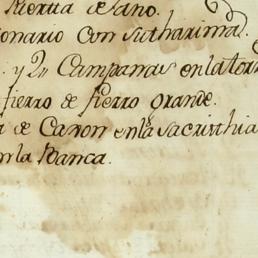 Puerta de Pano.
onario Con su tharima.
y 2 Campanas en la torr
fierro de fierro grande.
de Cavon en la sacristhia
en la Banca.